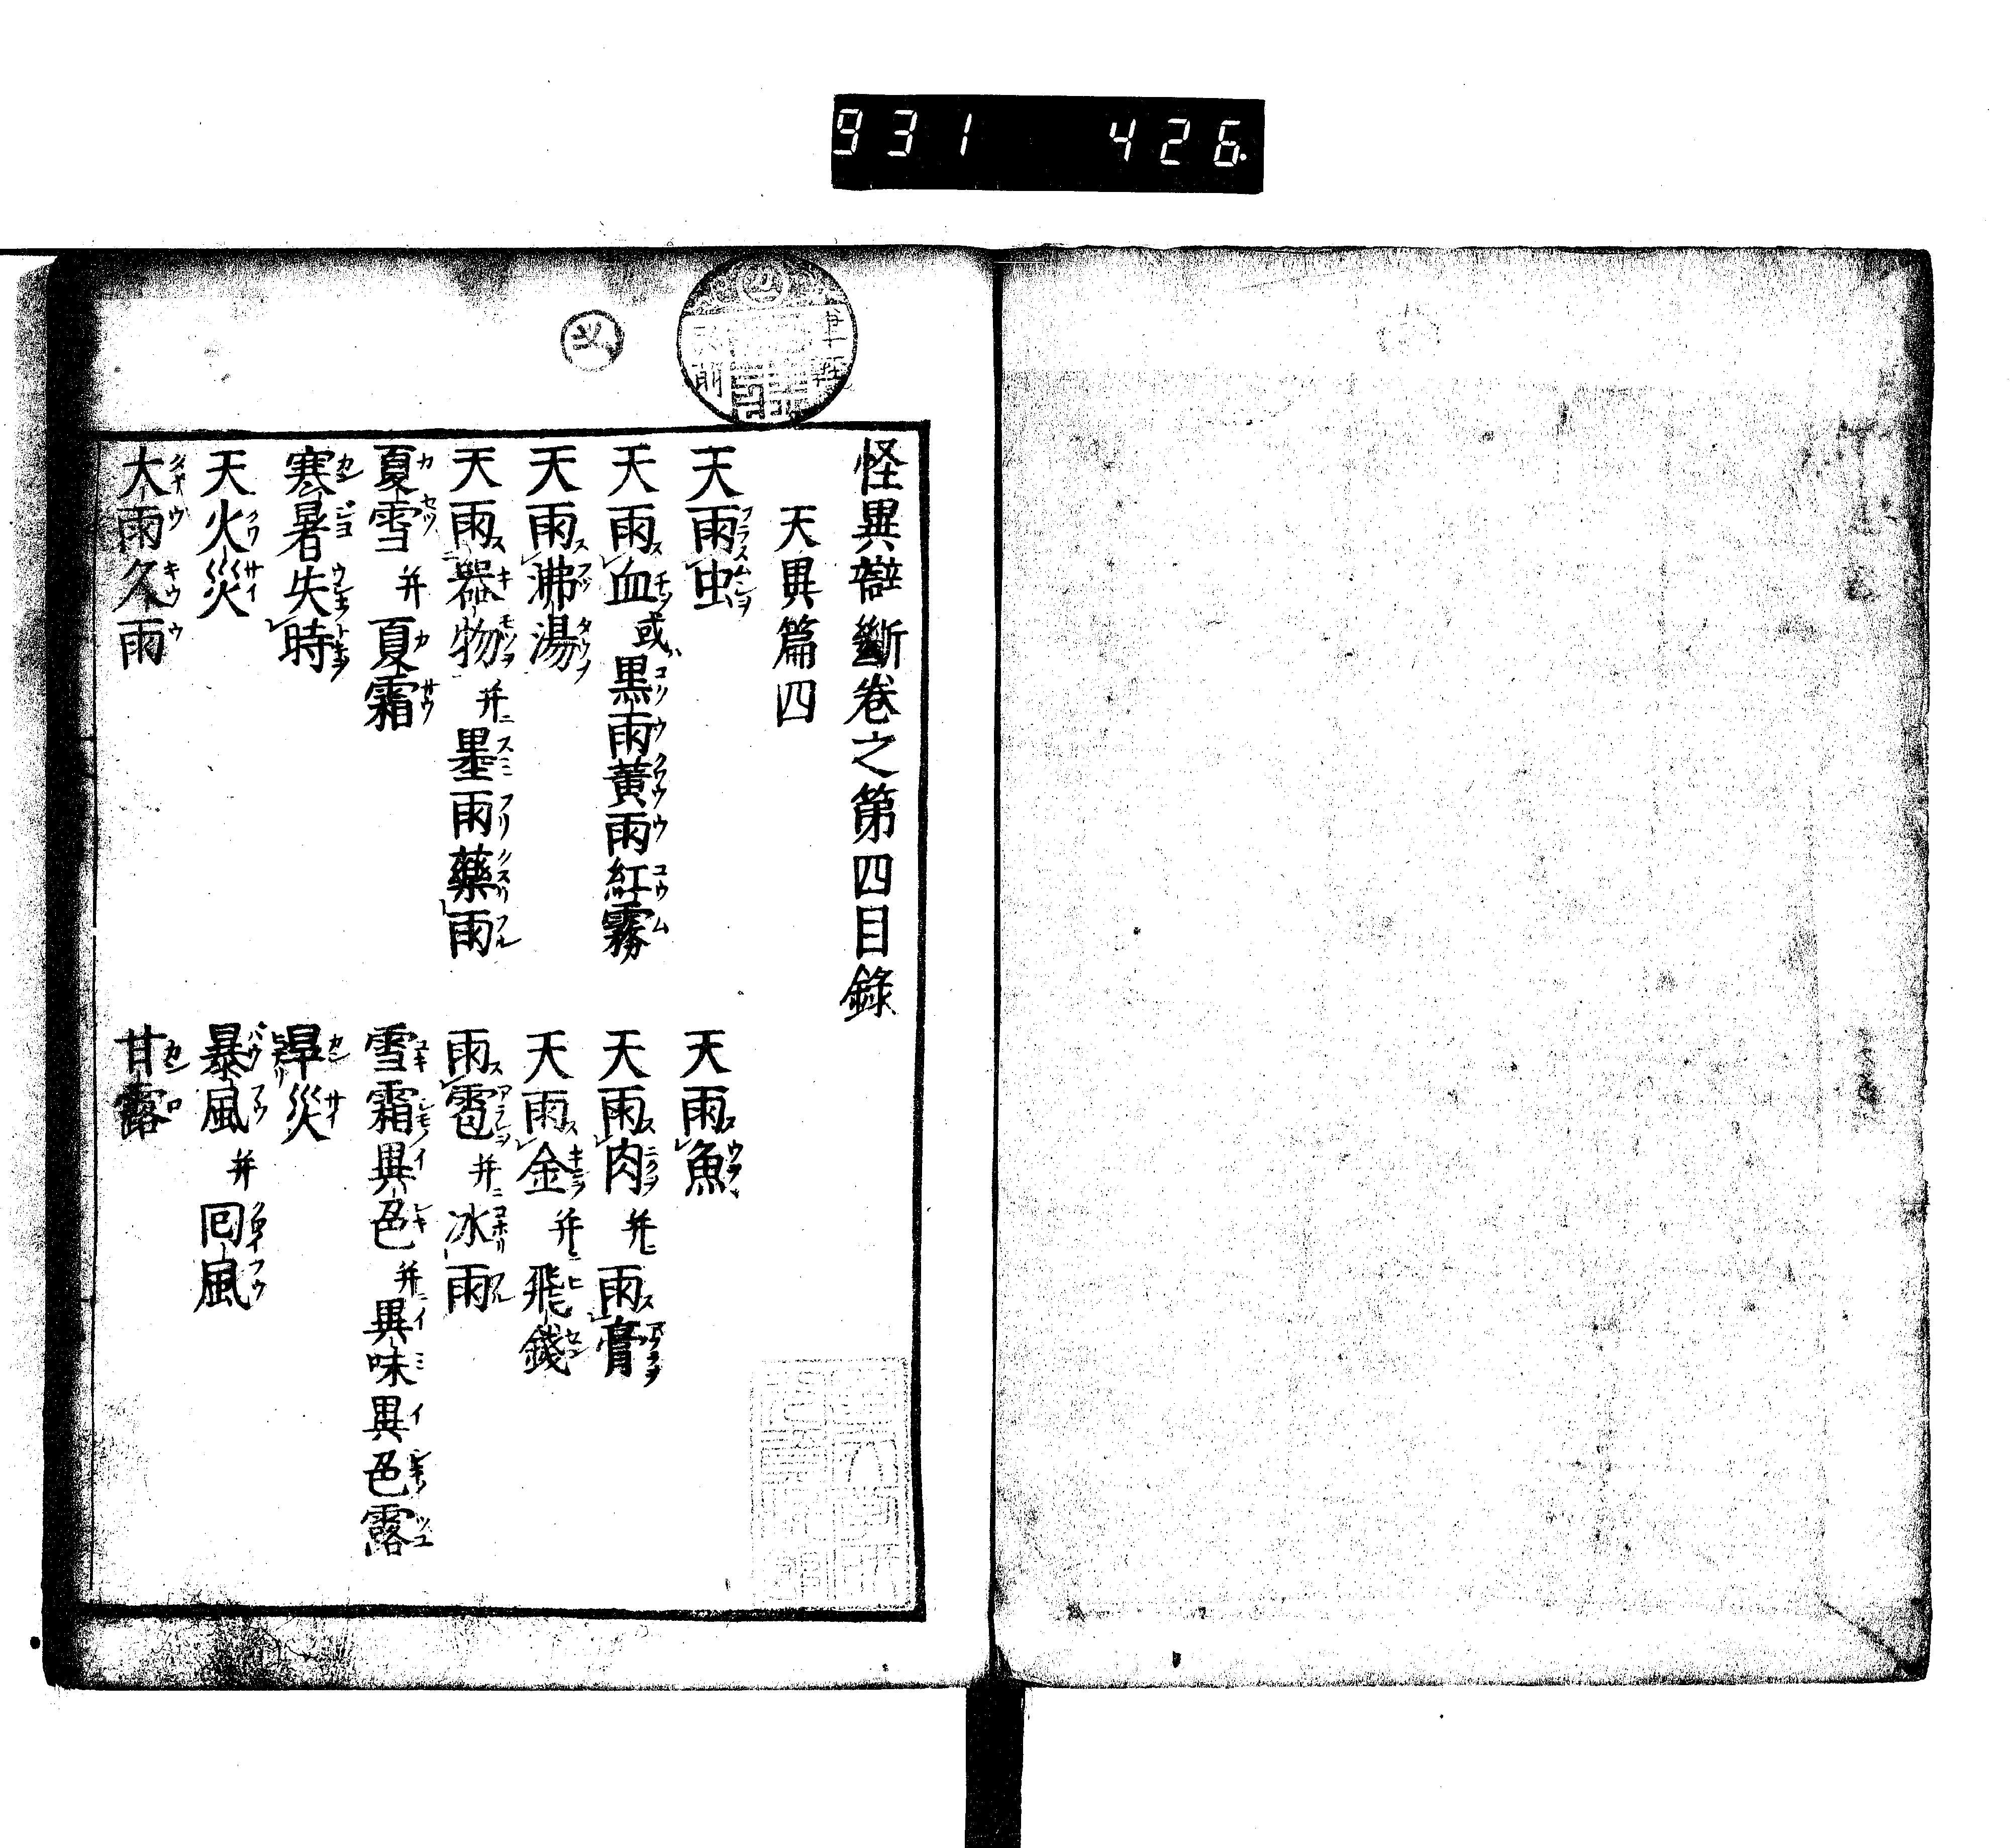 931 426
怪異辯斷卷之第四目錄
天異篇四
天雨虫 天雨魚
天雨血或黒雨黄雨紅霧 天雨肉并雨膏
天雨沸湯 天雨金并飛錢
天雨器物并墨雨藥雨 雨雹并冰雨
夏雪并夏霜 雪霜異色并異味異色露
寒暑失時 旱災
天火災 暴風并回風
大雨久雨 甘露